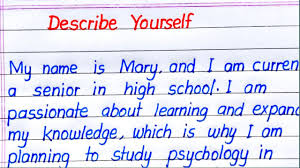 Describe Yourself
My name is Mary, and I am curren
a senior in high school. I am
passionate about learning and expand
my knowledge, which is why I am
planning to study psychology in